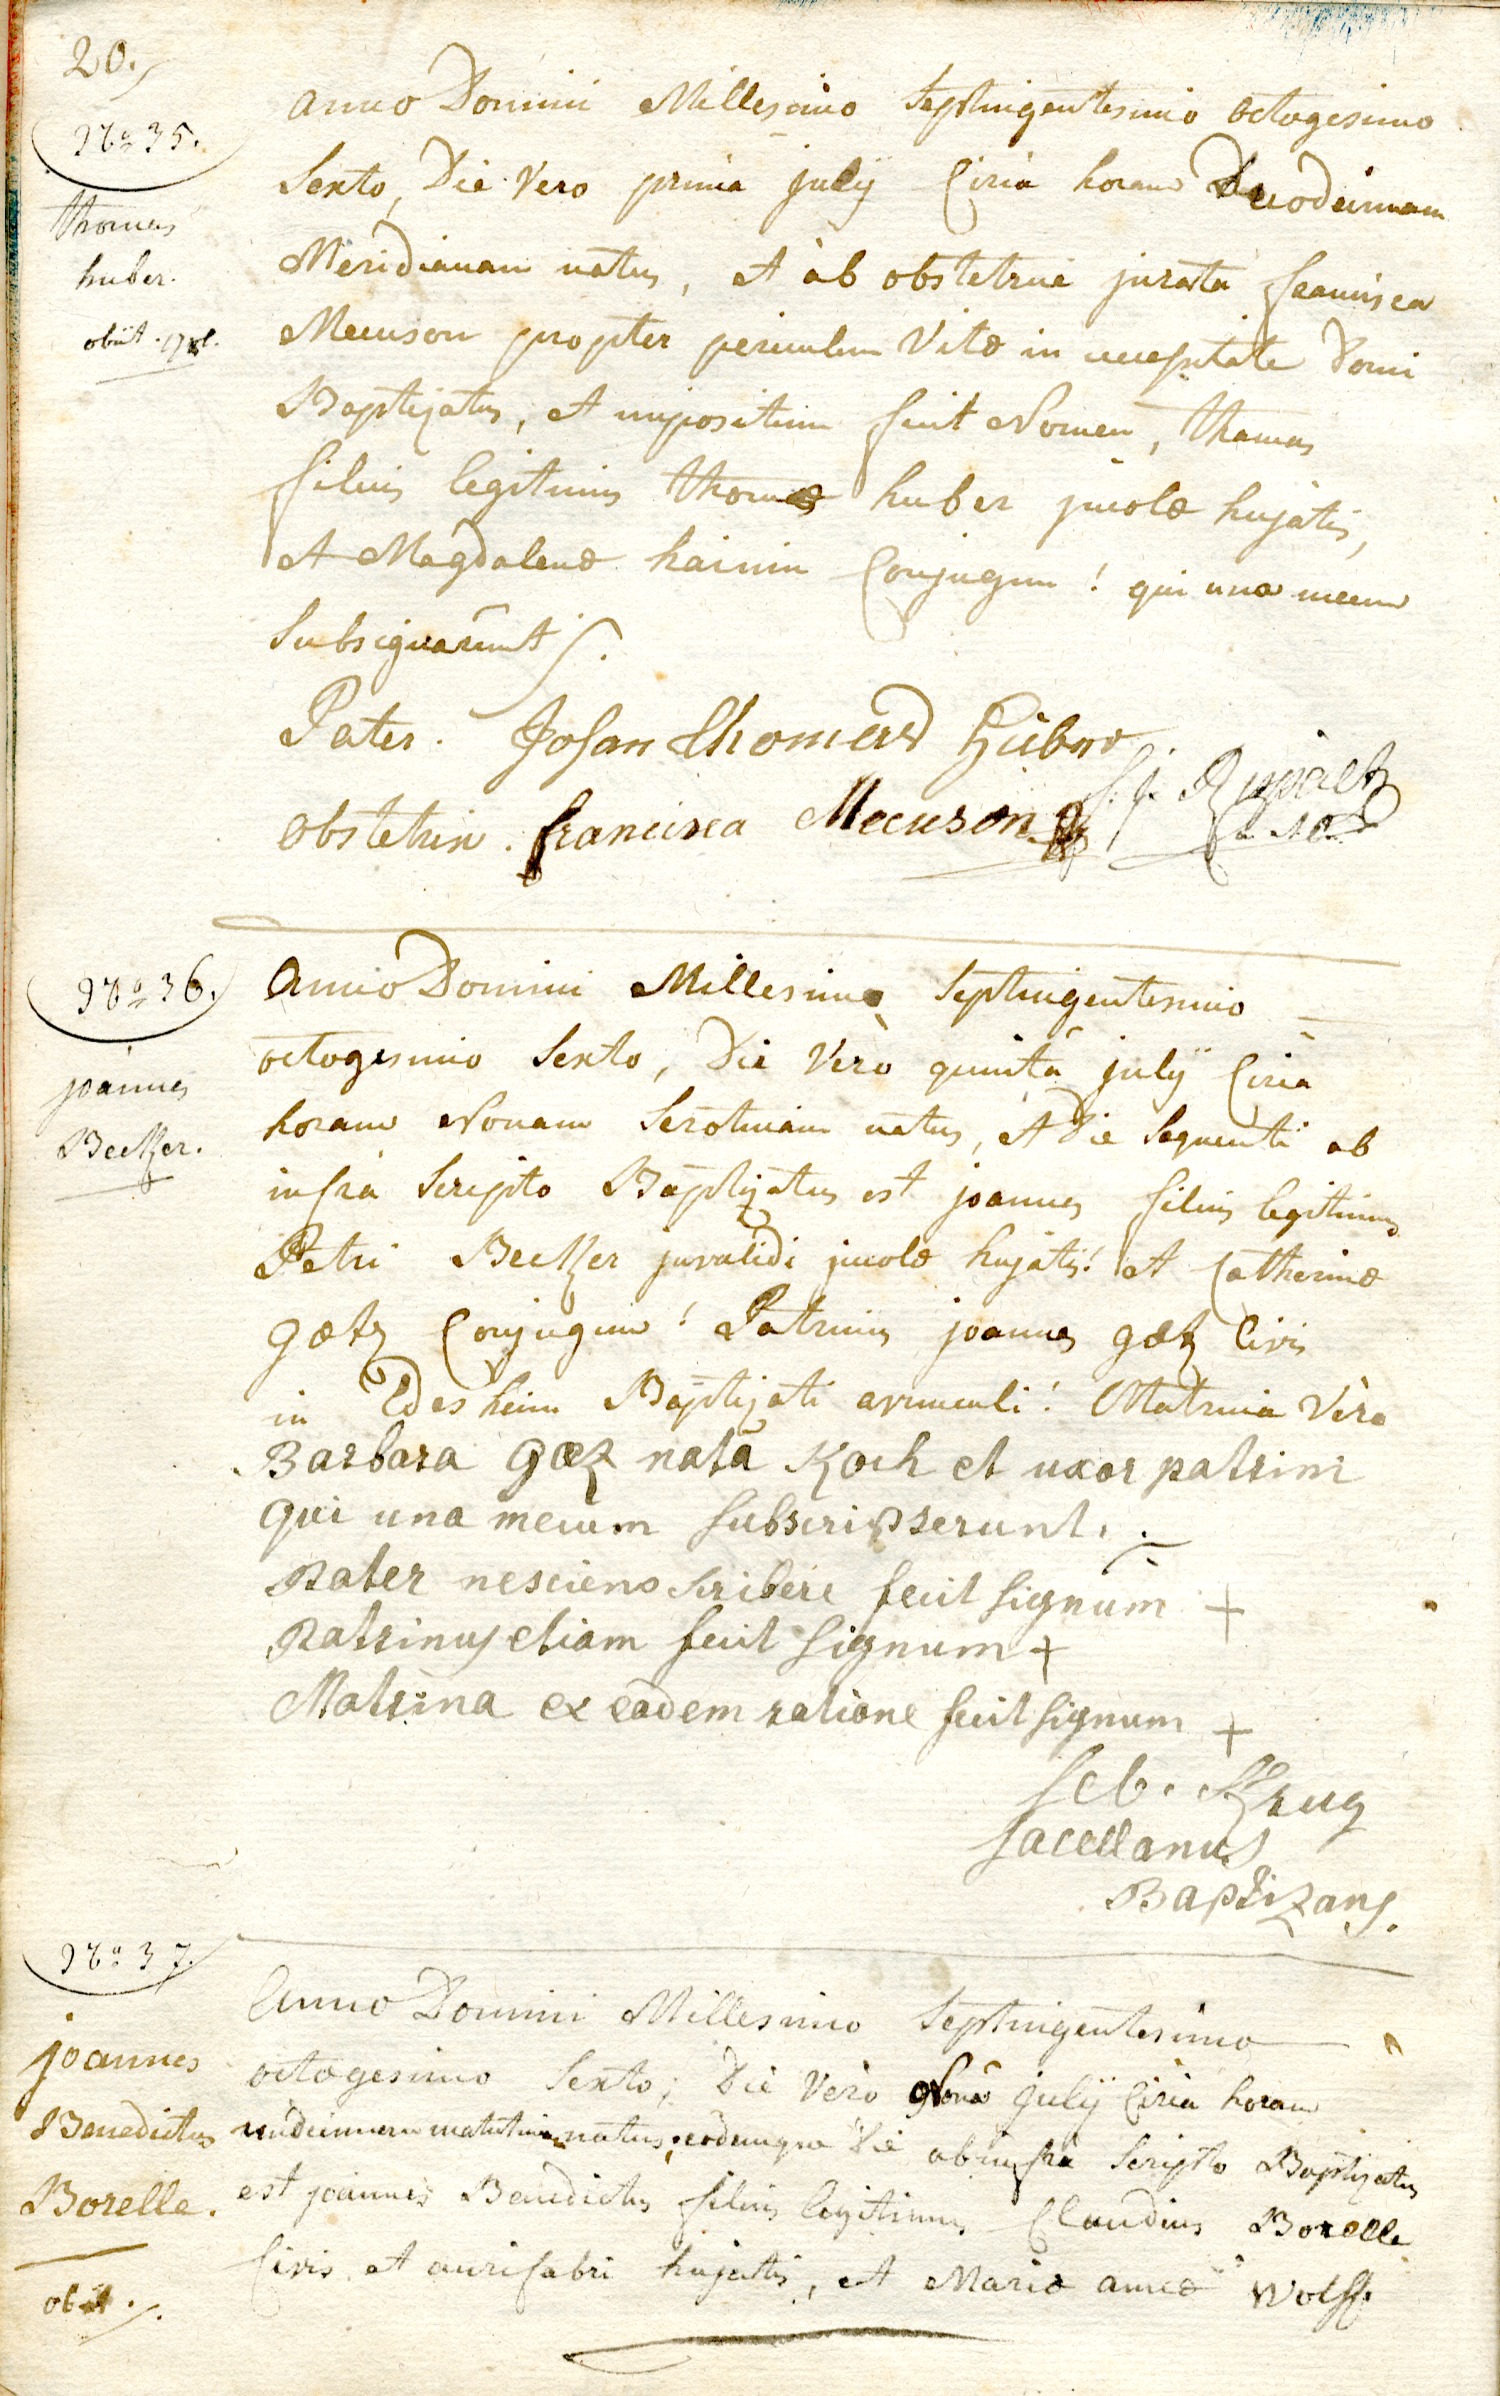 20.
Nº 35.
thomas
huber.
obiit
anno Domini Millesimo Septingentesimo octogesimo
Sexto, Die Vero prima july Circa horam Duodecimam
Meridianam natus, et ab obstetrice jurata francisca
Mecuson propter periculum Vitæ in necessitate Domi
Baptizatus, et impositum fuit Nomen, thomas
filius legitimus thomæ huber incolæ hujatis,
et Magdalenæ hainin Conjugum! qui una mecum
Subsignarunt
Pater. Johan thomas
obstetrix. francisca Mecuson
Nº 36.
joannes
Becker.
Anno Domini Millesimo Septingentesimo
octogesimo Sexto, Die Verò quinta july Circa
horam Nonam Serotinam natus, et Die Sequenti ab
infra Scripto Baptizatus est joannes filius legitimus
Petri Becker invalidi incolæ hujatis! et Catherinæ
gœtz Conjugum! Patrinus joannes gœtz Civis
in Edesheim Baptizati avunculi! Matrina Vero
Barbara Gœz nata Koch et uxor patrini
qui una mecum subscripserunt.
pater nesciens scribere fecit signum +
patrinus etiam fecit signum +
Matrina ex eadem ratione fecit signum +
Seb. Krug
sacellanus
Baptizans.
Nº 37.
joannes
Benedictus
Borelle.
obiit.
Anno Domini Millesimo Septingentesimo
octogesimo Sexto, Die Verò Nona julÿ Circa horam
undecimam matutinam natus, eodemque Die ab infra Scripto Baptizatus
est joannes Benedictus filius legitimus Claudius Borelle
Civis et aurifabri hujatis, et Mariæ annæ Wolff.